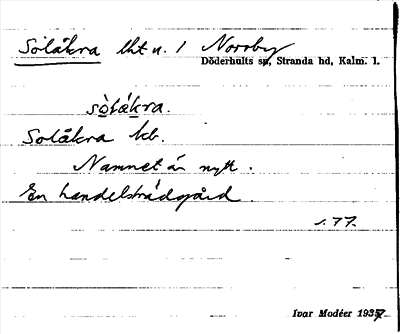 Solåkra lht u. 1 Norrby
Döderhults sn, Stranda hd, Kalm. l.
sòlákra.
Solåkra kb.
Namnet är nytt.
En handelsträdgård.
s. 77.
Ivar Modéer 1937